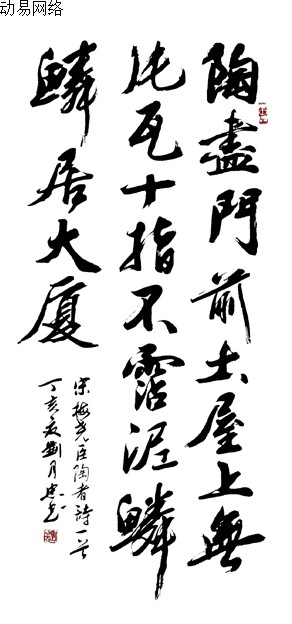 动易网络
陶盡門前土屋上無
片瓦十指不霑泥鱗
鱗居大廈
宋梅堯臣陶者詩一首
丁亥夏劉月忠书